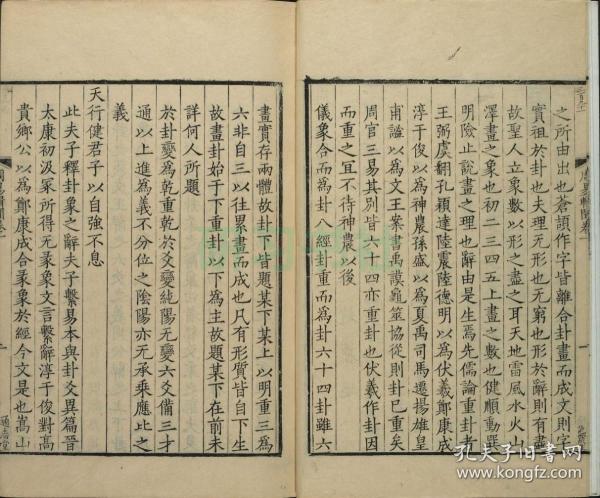 之所由出也蒼頡作字皆離合卦畫而成文則字
實祖於卦也夫理无形也无窮也形於辭則有盡
故聖人立象數以形之盡之耳天地雷風水火山
澤畫之象也初二三四五上畫之數也健順動巽
明險止說畫之理也辭由是生焉先儒論重卦者
王弼虞翻孔穎達陸震陸德明以為伏羲鄭康成
淳于俊以為神農孫盛以為夏禹司馬遷揚雄皇
甫謐以為文王案書禹謨龜筮協從則卦已重矣
周官三易其別皆六十四亦重卦也伏羲作卦因
而重之冝不待神農以後
儀象合而為卦八經卦重而為卦六十四卦雖六
畫實存兩體故卦下皆題某下某上以明重三為
六非自三以往累畫而成也凡有形質皆自下生
故畫卦始于下重卦以下為主故題某下在前未
詳何人所題
於卦變為乾重乾於爻變純陽无變六爻備三才
通以上進為義不分位之陰陽亦无承乘應比之
義
天行健君子以自強不息
此夫子釋卦象之辭夫子繫易本與卦爻異篇晉
太康初汲冢所得无彖象文言繫辭淳于俊對高
貴鄉公以為鄭康成合彖象於經今文是也嵩山
通志堂
孔夫子旧书网
www.kongfz.com